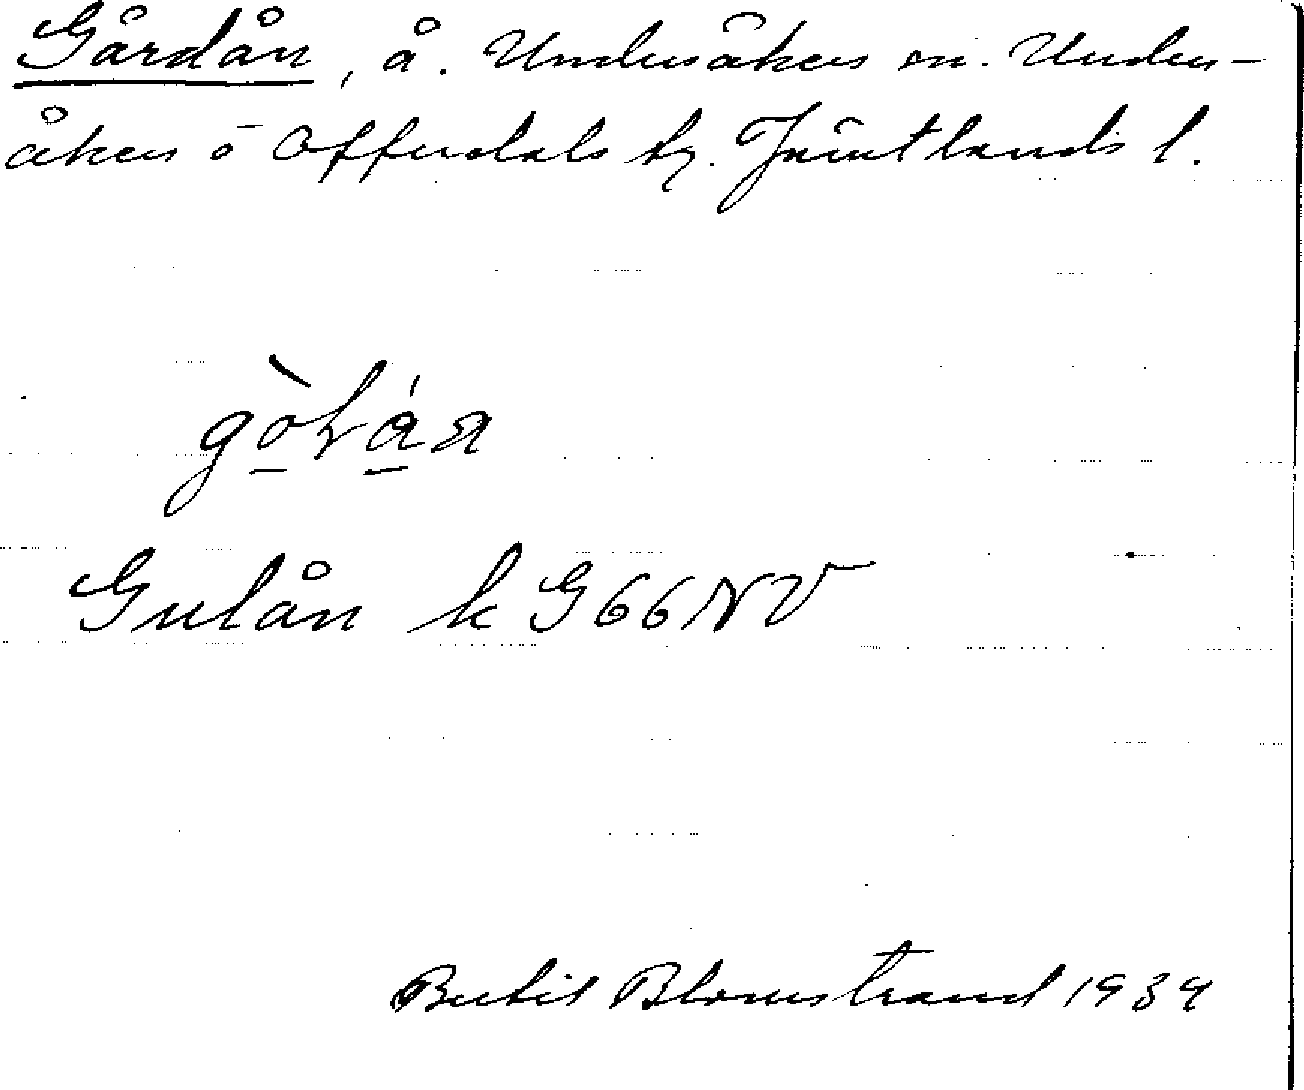 Gårdån, å. Undersåkers sn. Unders-
åkers o Offerdals tg. Jämtlands l.
Gulån k G66NV
Bertil Blomstrand 1934